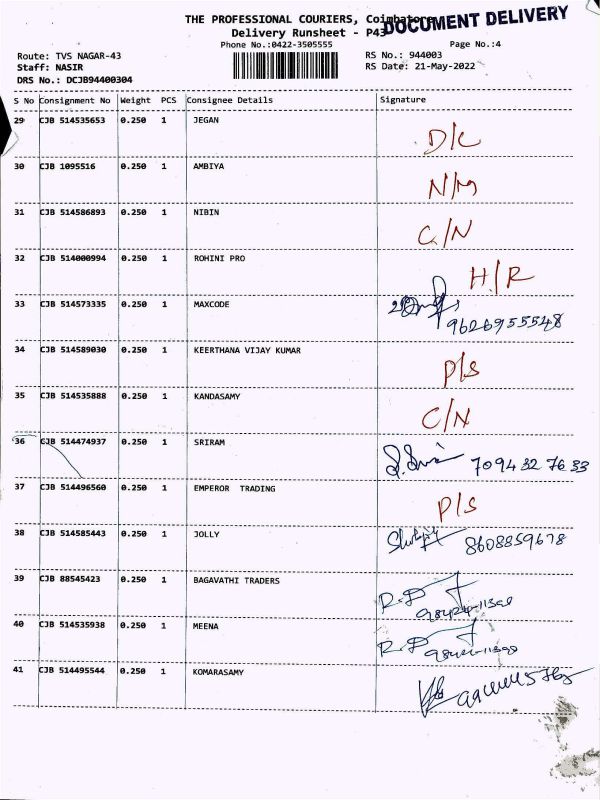 THE PROFESSIONAL COURIERS, Coimbatore
DOCUMENT DELIVERY
Delivery Runsheet - P43
Phone No.:0422-3505555
Page No.:4
Route: TVS NAGAR-43
RS No.: 944003
Staff: NASIR
RS Date: 21-May-2022
DRS No.: DCJB94400304
S No Consignment No Weight PCS Consignee Details Signature
29 CJB 514535653 0.250 1 JEGAN D/C
30 CJB 1095516 0.250 1 AMBIYA N/M
31 CJB 514586893 0.250 1 NIBIN C/N
32 CJB 514000994 0.250 1 ROHINI PRO H/R
33 CJB 514573335 0.250 1 MAXCODE
9626955548
34 CJB 514589030 0.250 1 KEERTHANA VIJAY KUMAR P/S
35 CJB 514535888 0.250 1 KANDASAMY C/N
36 CJB 514474937 0.250 1 SRIRAM 7094327633
37 CJB 514496560 0.250 1 EMPEROR TRADING P/S
38 CJB 514585443 0.250 1 JOLLY 8608859678
39 CJB 88545423 0.250 1 BAGAVATHI TRADERS
40 CJB 514535938 0.250 1 MEENA
41 CJB 514495544 0.250 1 KOMARASAMY